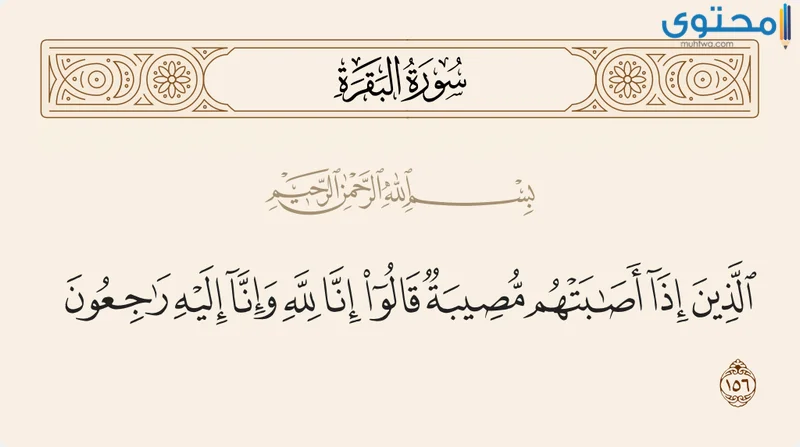 محتوى
muhtwa.com
سُورَةُ البَقَرَةِ
بِسْمِ ٱللَّهِ ٱلرَّحْمَٰنِ ٱلرَّحِيمِ
ٱلَّذِينَ إِذَآ أَصَٰبَتْهُم مُّصِيبَةٌ قَالُوٓا۟ إِنَّا لِلَّهِ وَإِنَّآ إِلَيْهِ رَٰجِعُونَ
١٥٦